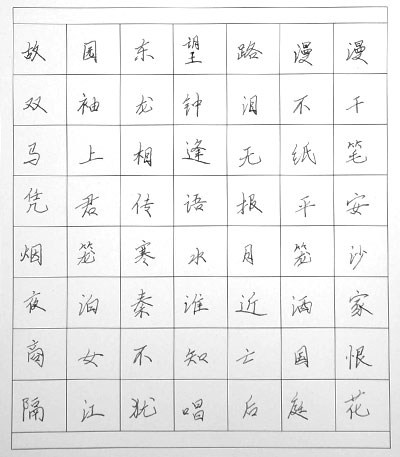 故园东望路漫漫
双袖龙钟泪不干
马上相逢无纸笔
凭君传语报平安
烟笼寒水月笼沙
夜泊秦淮近酒家
商女不知亡国恨
隔江犹唱后庭花